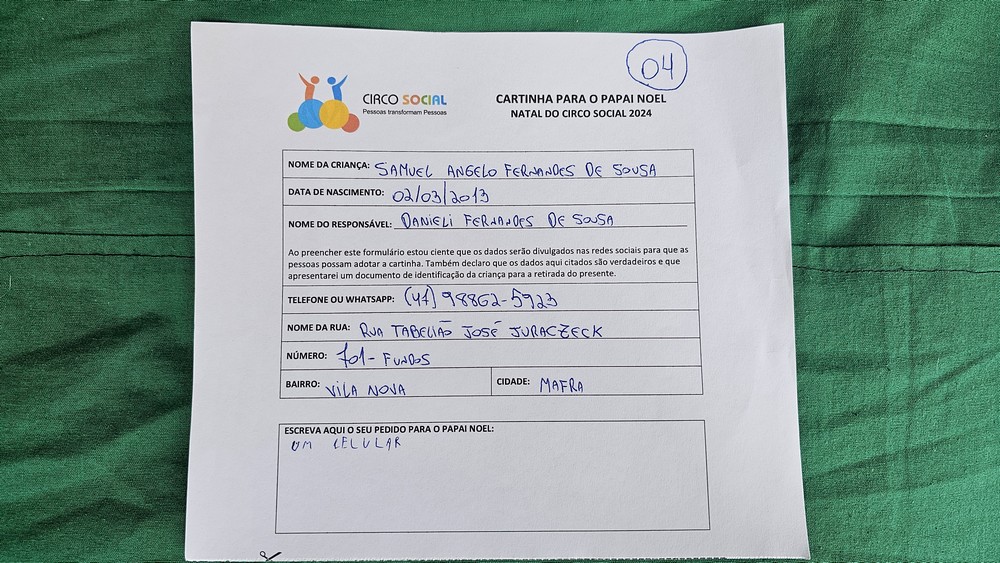 04
CIRCO SOCIAL
Pessoas transformam Pessoas
CARTINHA PARA O PAPAI NOEL
NATAL DO CIRCO SOCIAL 2024
NOME DA CRIANÇA: SAMUEL ANGELO FERNANDES DE SOUSA
DATA DE NASCIMENTO: 02/03/2013
NOME DO RESPONSÁVEL: DANIELI FERNANDES DE SOUSA
Ao preencher este formulário estou ciente que os dados serão divulgados nas redes sociais para que as
pessoas possam adotar a cartinha. Também declaro que os dados aqui citados são verdadeiros e que
apresentarei um documento de identificação da criança para a retirada do presente.
TELEFONE OU WHATSAPP: (47) 98862-5923
NOME DA RUA: RUA TABELIÃO JOSÉ JURACZECK
NÚMERO: 701- FUNDOS
BAIRRO: VILA NOVA CIDADE: MAFRA
ESCREVA AQUI O SEU PEDIDO PARA O PAPAI NOEL:
UM CELULAR